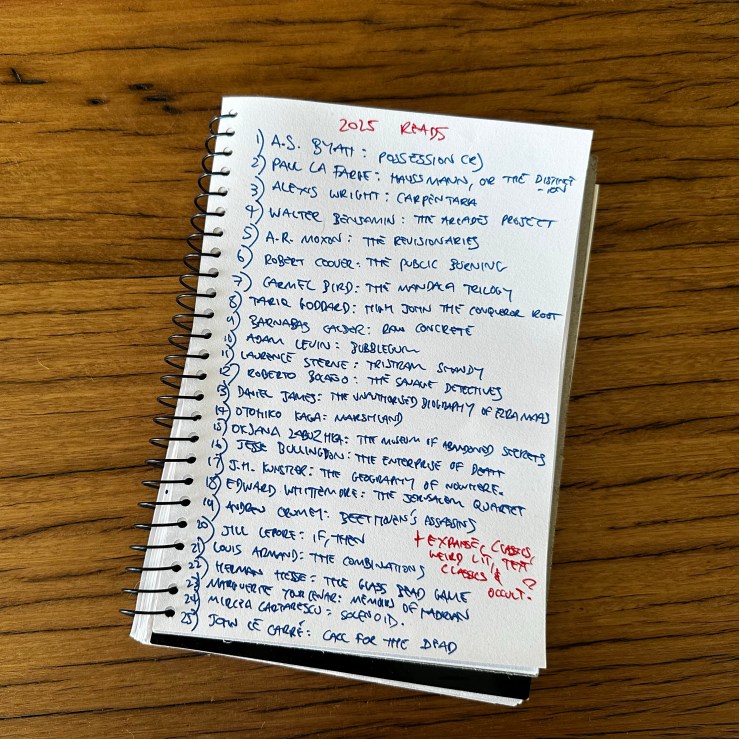 2025 READS
1) A.S. BYATT: POSSESSION (R)
2) PAUL LA FARGE: HAUSSMANN, OR THE DISTINCT
-ION
3) ALEXIS WRIGHT: CARPENTARIA
4) WALTER BENJAMIN: THE ARCADES PROJECT
5) A.R. MOXON: THE REVISIONARIES
6) ROBERT COOVER: THE PUBLIC BURNING
7) CARMEL BIRD: THE MANDALA TRILOGY
8) TARIQ GODDARD: HIGH JOHN THE CONQUEROR ROOT
9) BARNABAS CALDER: RAW CONCRETE
10) ADAM LEVIN: BUBBLEGUM
11) LAURENCE STERNE: TRISTRAM SHANDY
12) ROBERTO BOLAÑO: THE SAVAGE DETECTIVES
13) DANIEL JAMES: THE UNAUTHORISED BIOGRAPHY OF EZRA MAAS
14) OTOHIKO KAGA: MARSHLAND
15) OKSANA ZABUZHKA: THE MUSEUM OF ABANDONED SECRETS
16) JESSE BULLINGTON: THE ENTERPRISE OF DEATH
17) J.H. KUNSTLER: THE GEOGRAPHY OF NOWHERE.
18) EDWARD WHITTEMORE: THE JERUSALEM QUARTET
19) ANDREW CRUMEY: BEETHOVEN'S ASSASSINS
20) JILL LEPORE: IF, THEN
21) LOUIS ARMAND: THE COMBINATIONS
22) HERMAN HESSE: THE GLASS BEAD GAME
23) MARGUERITE YOURCENAR: MEMOIRS OF HADRIAN
24) MIRCEA CARTARESCU: SOLENOID.
25) JOHN LE CARRÉ: CALL FOR THE DEAD
+ EXPANSE, CLASSICS,
WEIRD LIT, TEXT
CLASSICS &
OCCULT?